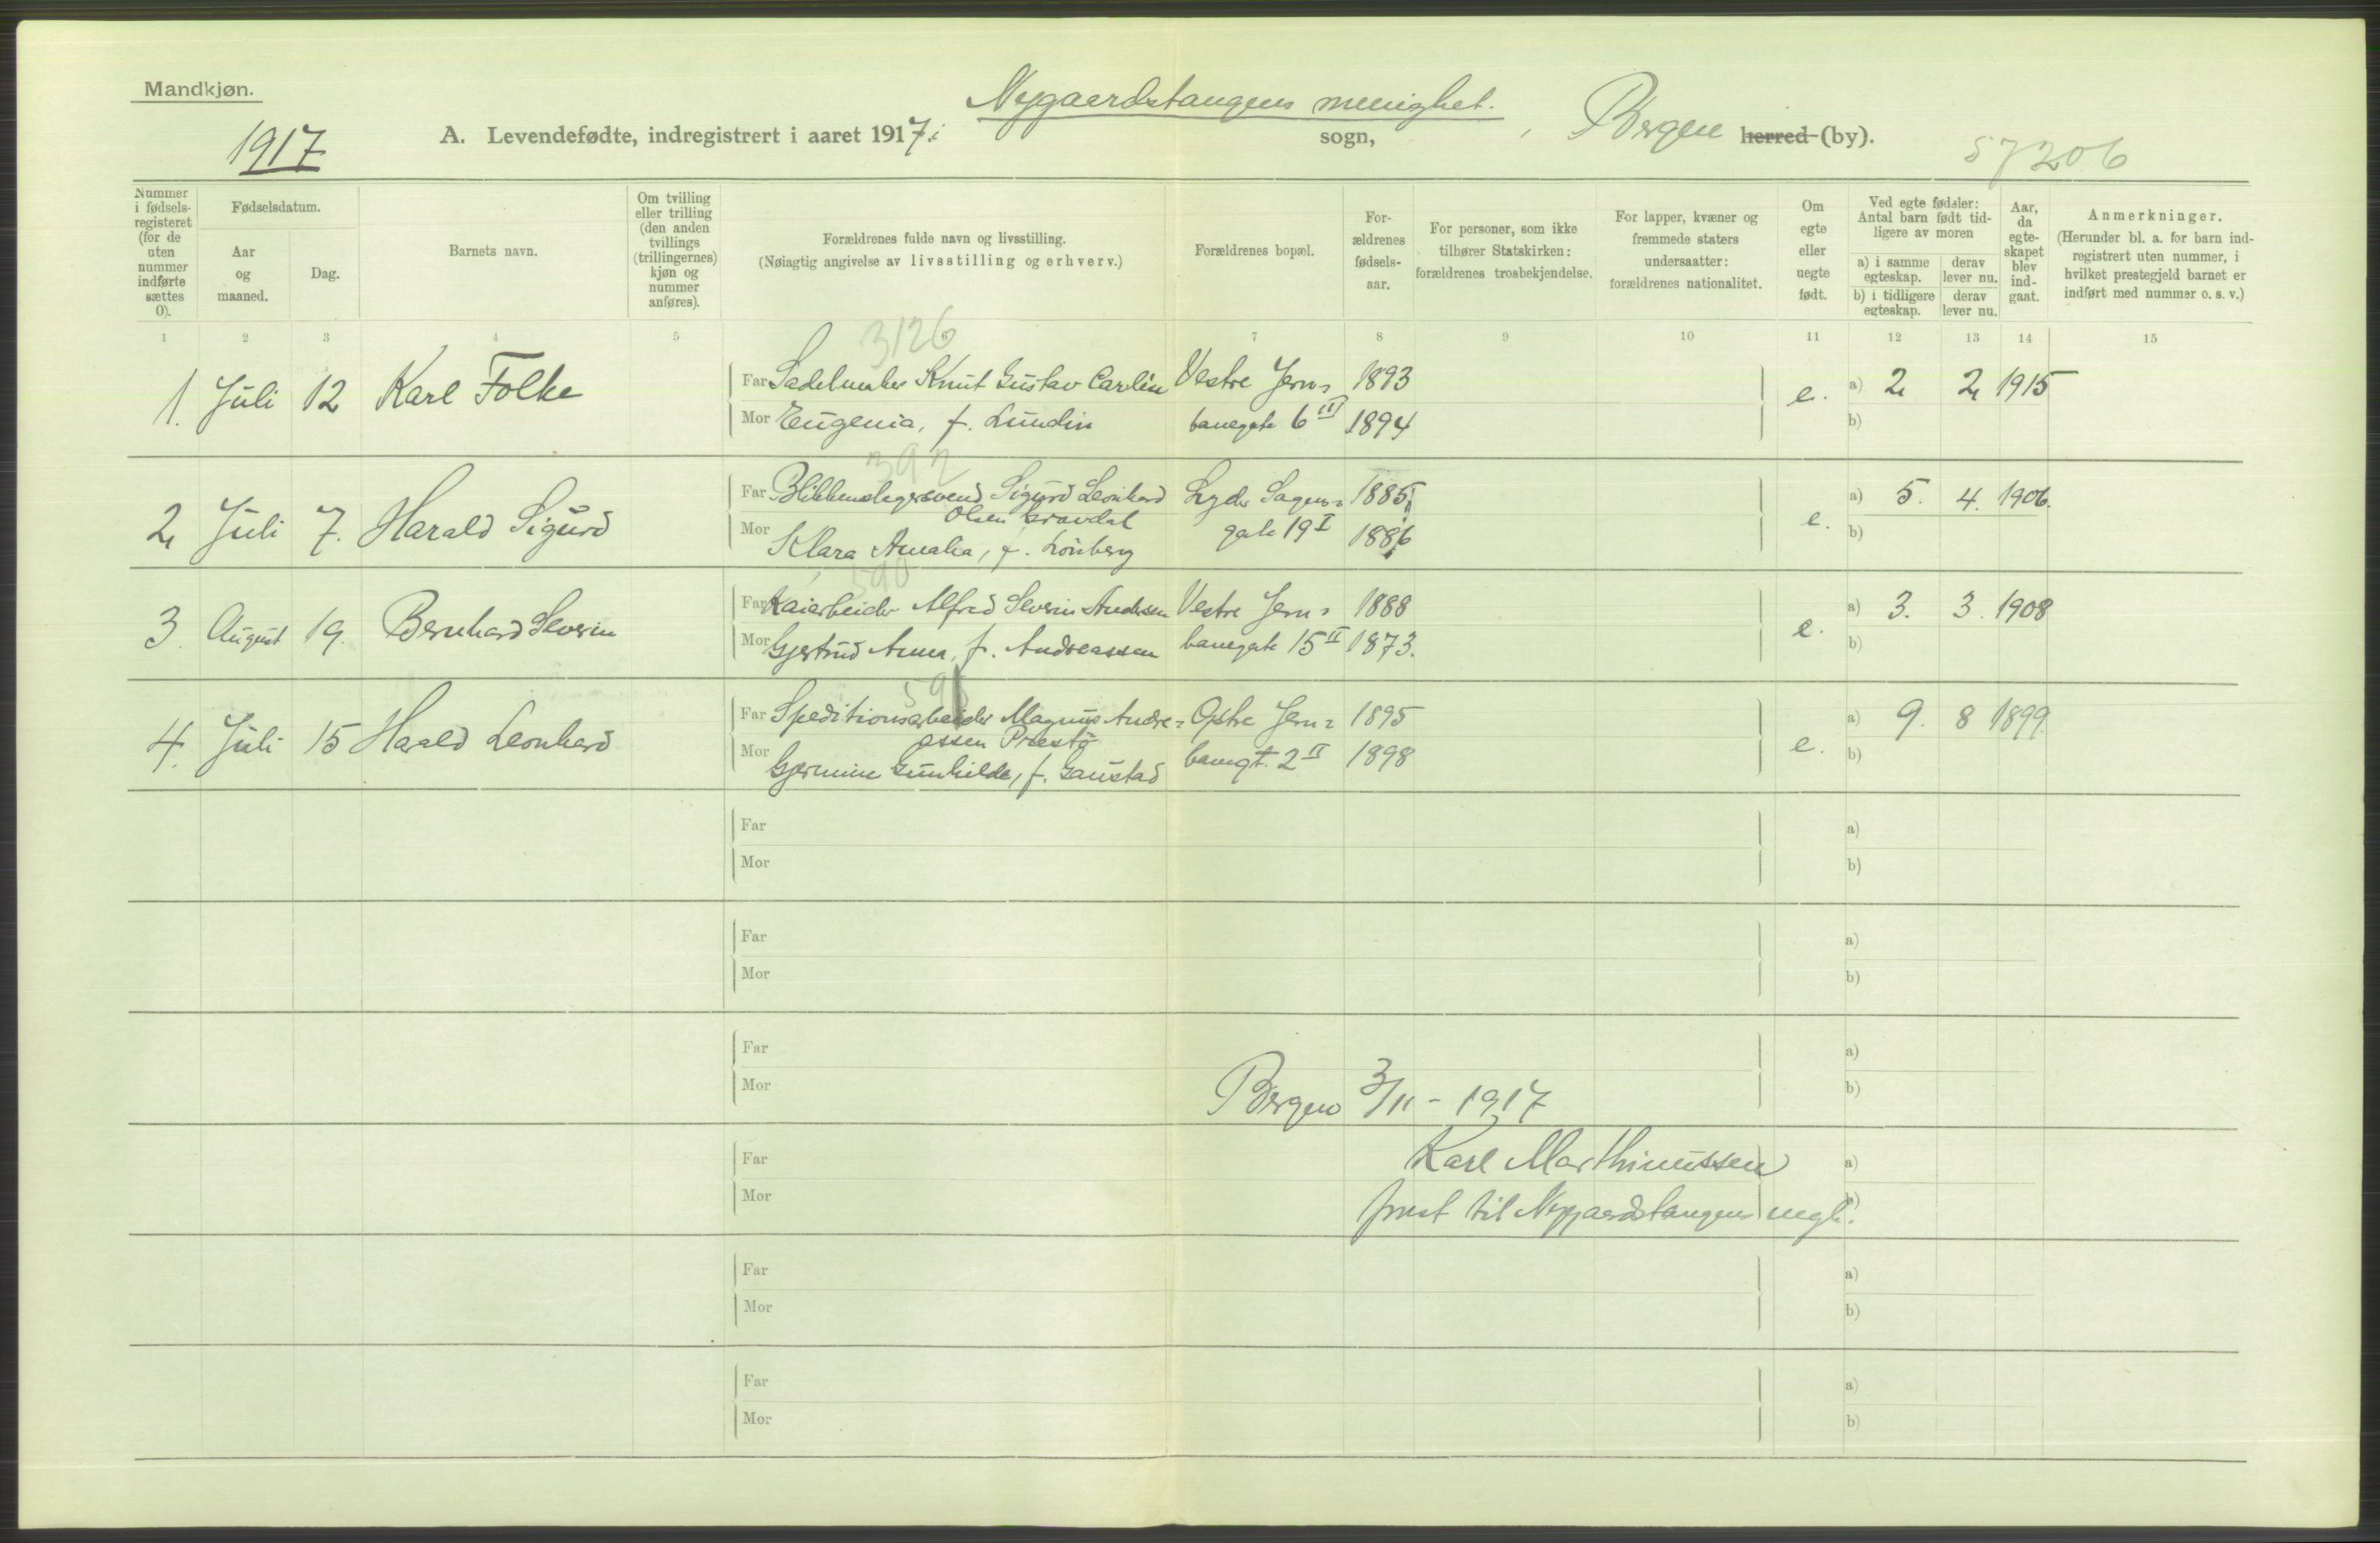 Mandkjøn.
1917
A. Levendefødte, indregistrert i aaret 1917 i Nygaardstangens menighet. sogn, Bergen herred (by).
57206
Nummer i fødsels-registeret (for de uten nummer indførte sættes 0).
Fødselsdatum.
Aar og maaned.
Dag.
Barnets navn.
Om tvilling eller trilling (den anden tvillings (trillingernes) kjøn og nummer anføres).
Forældrenes fulde navn og livsstilling.
(Nøiagtig angivelse av livsstilling og erhverv.)
Forældrenes bopæl.
For-ældrenes fødsels-aar.
For personer, som ikke tilhører Statskirken: forældrenes trosbekjendelse.
For lapper, kvæner og fremmede staters undersaatter: forældrenes nationalitet.
Om egte eller uegte født.
Ved egte fødsler: Antal barn født tid-ligere av moren
a) i samme egteskap.
derav lever nu.
b) i tidligere egteskap.
derav lever nu.
Aar, da egte-skapet blev ind-gaat.
Anmerkninger.
(Herunder bl. a. for barn ind-registrert uten nummer, i hvilket prestegjeld barnet er indført med nummer o. s. v.)
1 2 3 4 5 6 7 8 9 10 11 12 13 14 15
3126
1. Juli 12 Karl Folke Far Sadelmaker Knut Gustav Carlin Vestre Jern= 1893 e. a) 2 2 1915
Mor Eugenia, f. Lundin banegate 6 III 1894 b)
392
2 Juli 7. Harald Sigurd Far Blikkenslagersvend Sigurd Leonhard Lyder Sagens= 1885 e. a) 5. 4. 1906.
Olsen Gravdal
Mor Klara Amalia, f. Lönberg gate 19 I 1886 b)
590
3. August 19. Bernhard Severin Far Kaiarbeider Alfred Severin Andersen Vestre Jern= 1888 e. a) 3. 3. 1908
Mor Gjertrud Anna, f. Andreassen banegate 15 II 1873. b)
59
4. Juli 15 Harald Leonhard Far Speditionsarbeider Magnus Andre= Østre Jern= 1895 e. a) 9. 8 1899.
assen Prestö
Mor Gjermine Gunhilde, f. Gaustad banegt. 2 II 1898 b)
Far a)
Mor b)
Far a)
Mor b)
Far a)
Mor b)
Bergen 3/11 - 1917
Far Karl Marthinussen a)
Mor prest til Nygaardstangens mgh. b)
Far a)
Mor b)
Far a)
Mor b)